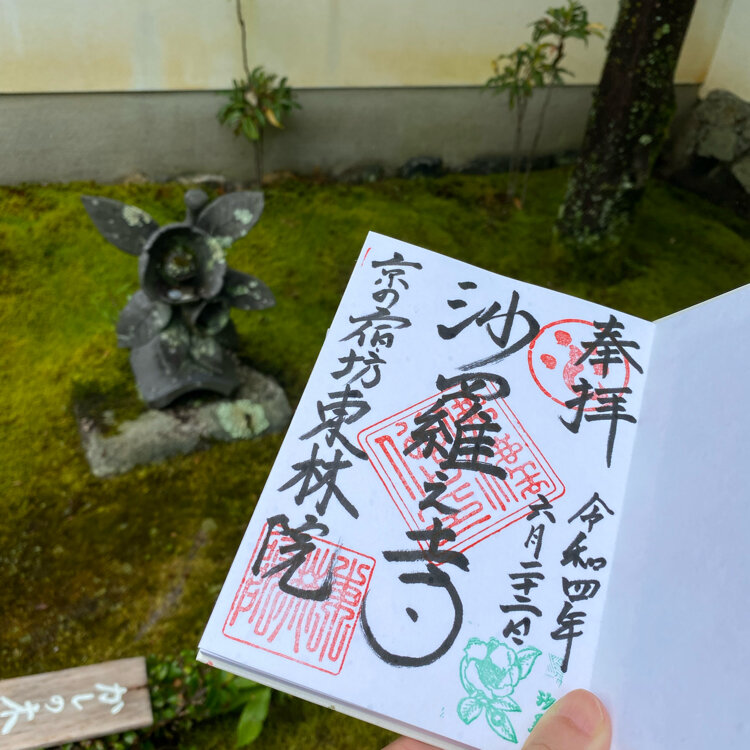 奉拝
令和四年
六月二十二日
沙羅之寺
京の宿坊東林院
かしの木